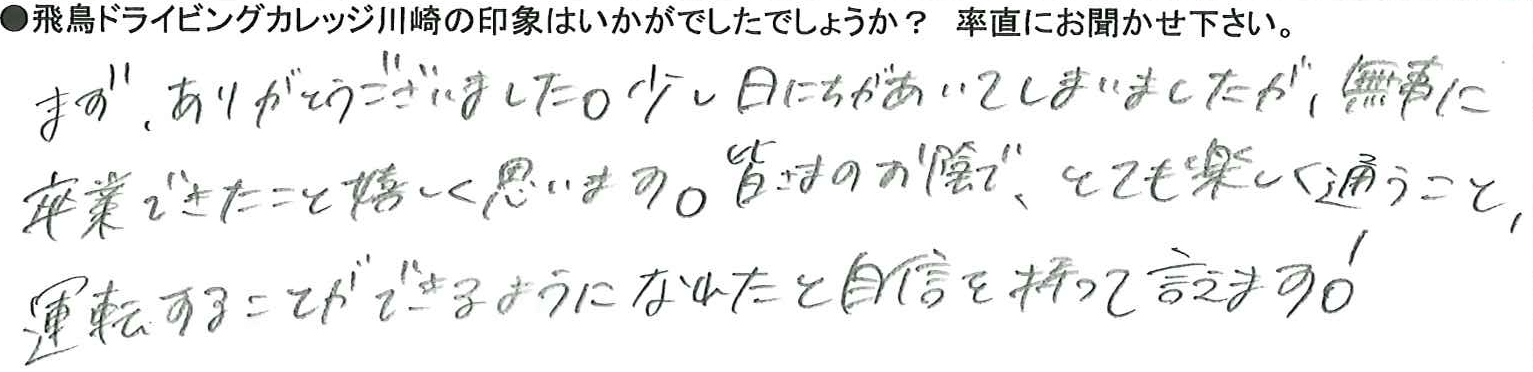 ●飛鳥ドライビングカレッジ川崎の印象はいかがでしたでしょうか？ 率直にお聞かせ下さい。
まず、ありがとうございました。少し日にちがあいてしまいましたが、無事に
卒業できたこと嬉しく思います。皆さまのお陰で、とても楽しく通うこと、
運転することができるようになれたと自信を持って言えます!